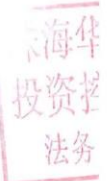 海华
投资控
法务